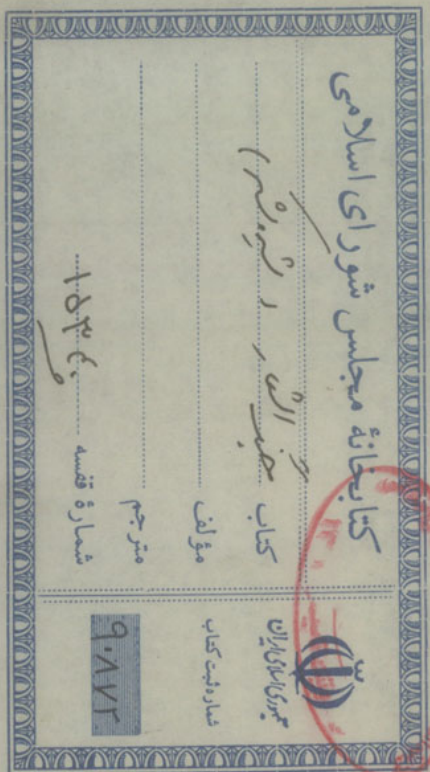 کتابخانهٔ مجلس شورای اسلامی
کتاب
مؤلف
مترجم
شمارهٔ قفسه ۱۵۳۴۰
جمهوری اسلامی ایران
شماره ثبت کتاب
۹۰۸۷۳